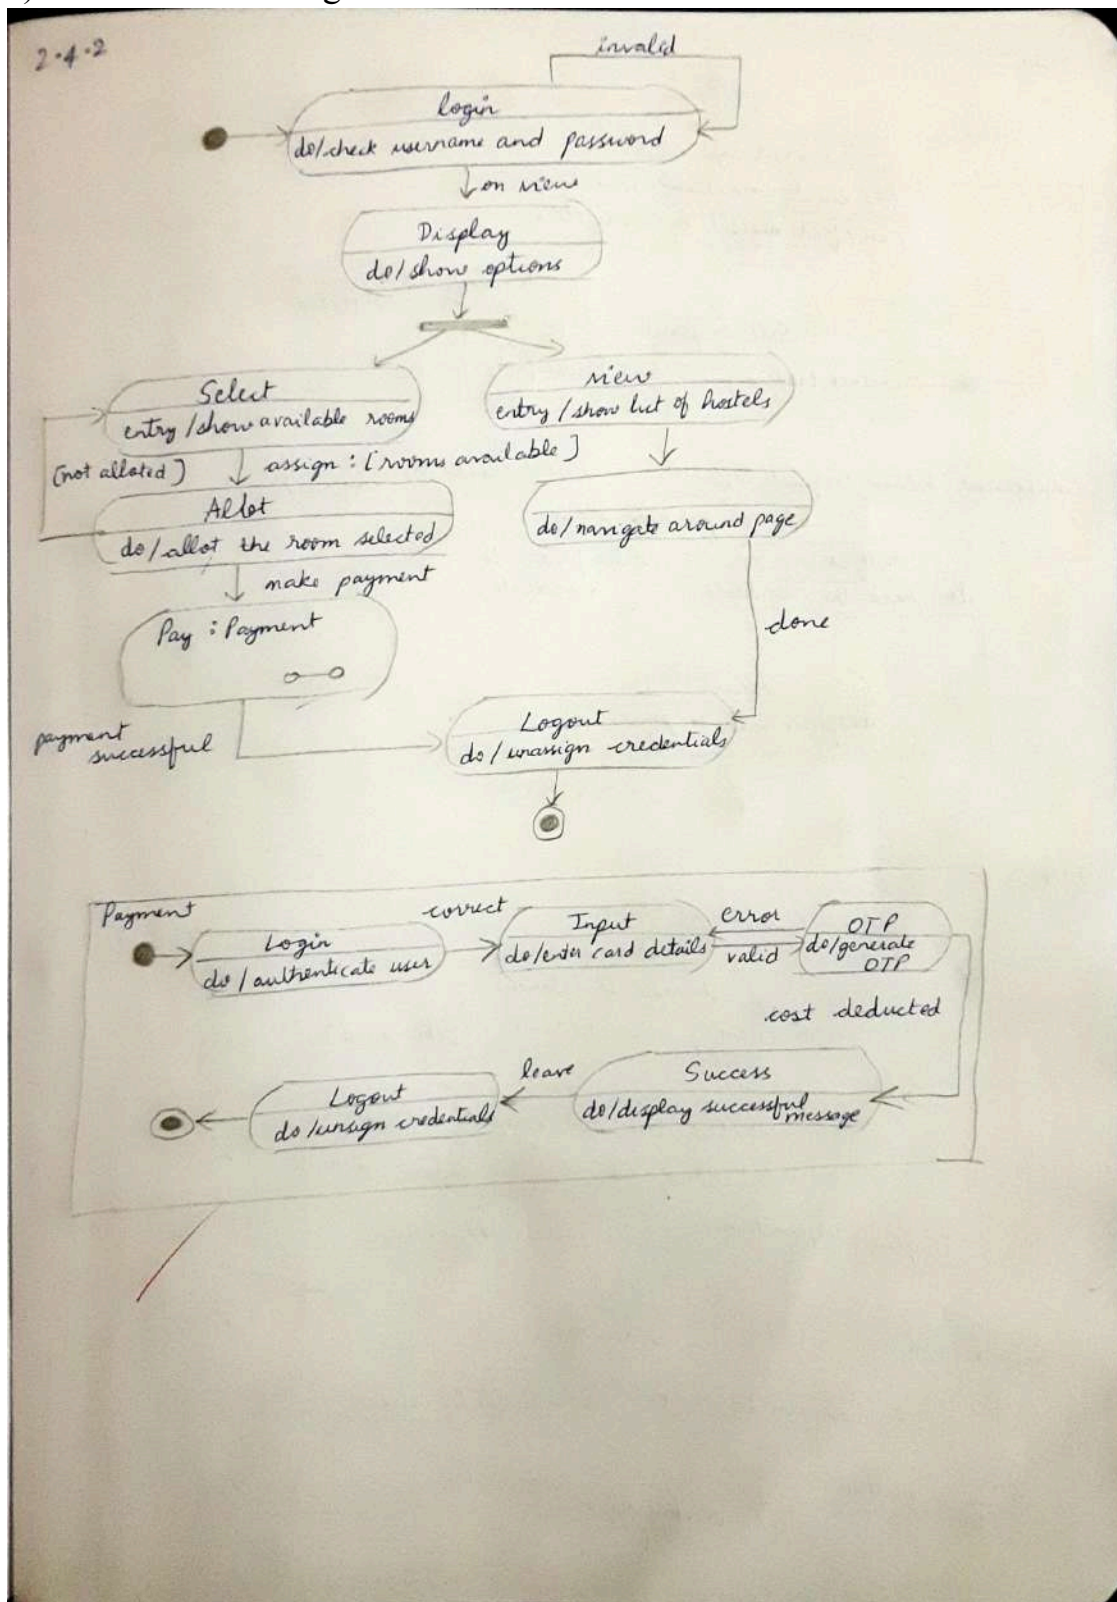 2.4.2
invalid
login
do/check username and password
on view
Display
do/show options
Select
entry /show available rooms
view
entry /show list of hostels
[not alloted]
assign : [rooms available]
Allot
do/allot the room selected
do/navigate around page
make payment
Pay : Payment
done
payment
successful
Logout
do/unassign credentials
Payment
Login
do / authenticate user
correct
Input
do/enter card details
error
valid
OTP
do/generate
OTP
cost deducted
Success
do/display successful
message
leave
Logout
do /unsign credentials